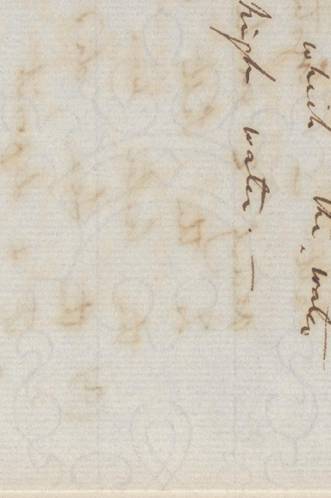 which the water
high water. —